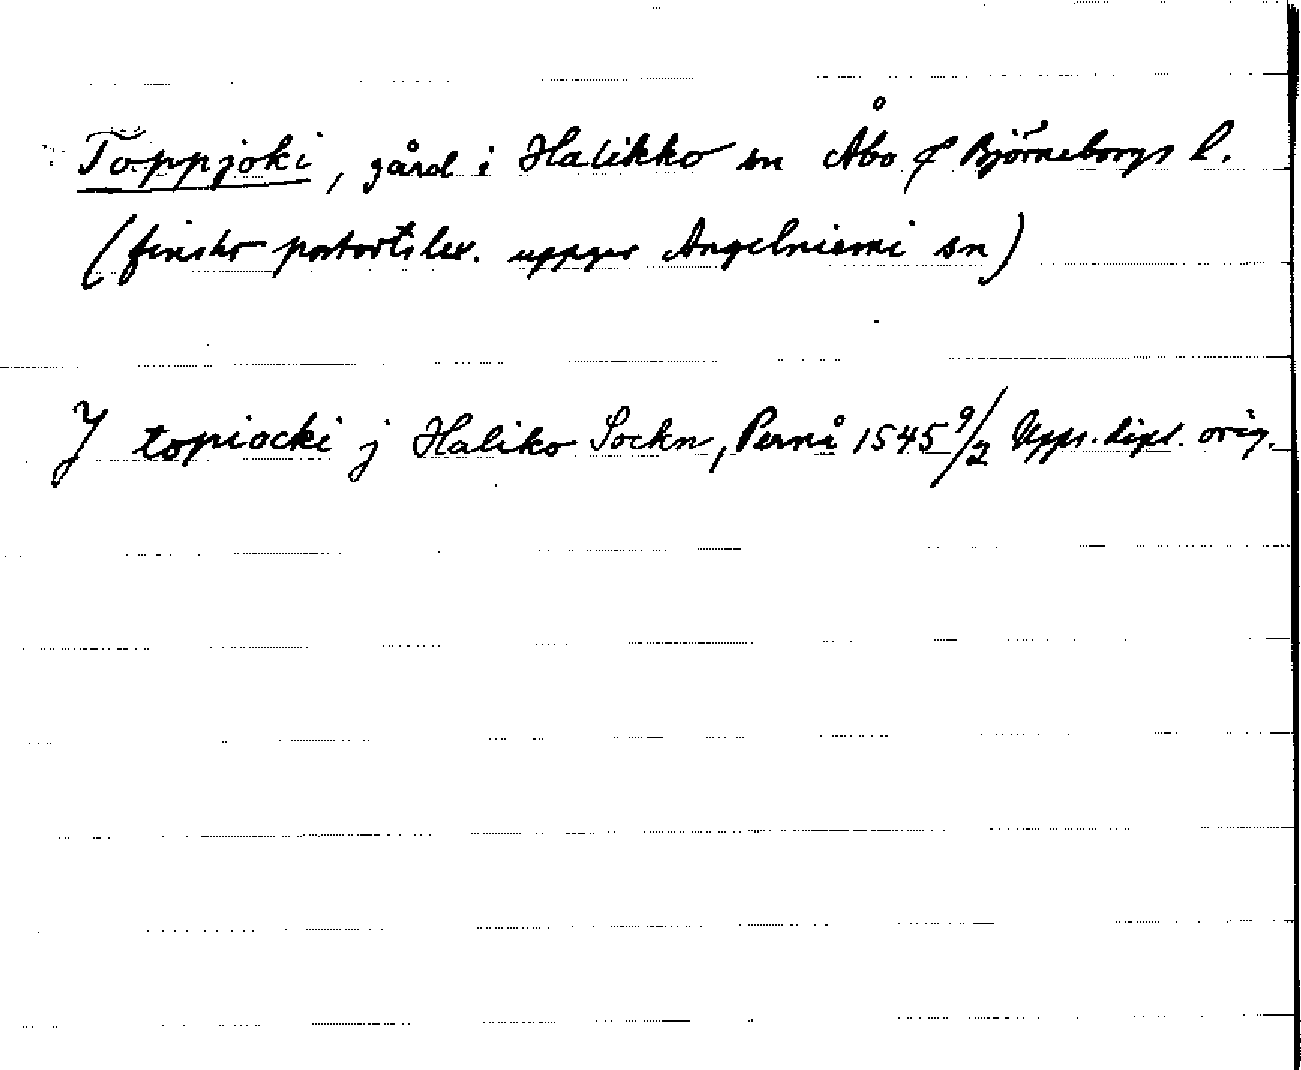 Toppjoki, gård i Halikko sn Åbo & Björneborgs l.
(finska postortslex. uppger Angelniemi sn)
J topiocki j Haliko Sockn, Pernå 1545 9/2 Upps. dipl. orig.